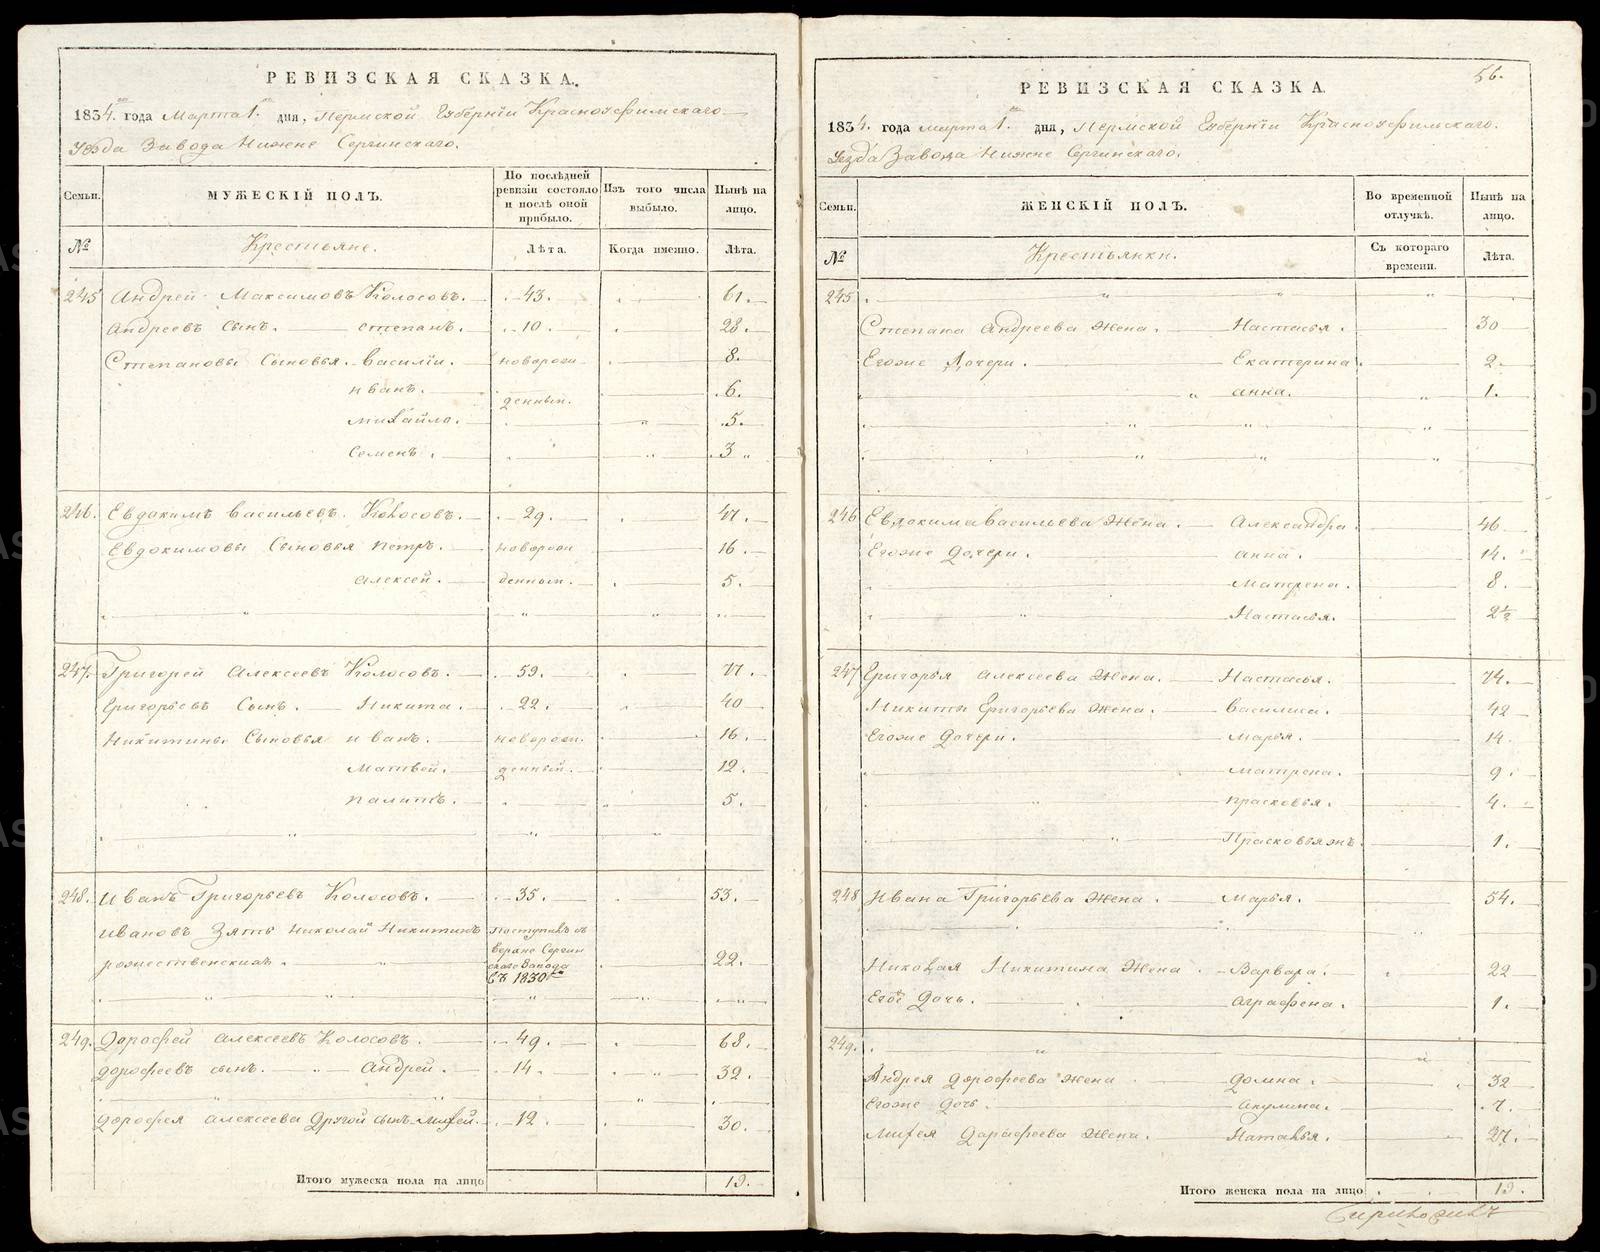 РЕВИЗСКАЯ СКАЗКА.
1834. года Марта 1. дня, Пермской Губерніи Красноуфимскаго
Уезда Завода Нижне Сергинскаго.
Семьи. МУЖЕСКІЙ ПОЛЪ. По послѣдней ревизіи состояло и послѣ оной прибыло. Изъ того числа выбыло. Нынѣ на лицо.
№ Крестьяне. Лѣта. Когда именно. Лѣта.
245 Андрей Максимовъ Колосовъ. 43. 61.
Андреевъ Сынъ. Степанъ. 10. 28.
Степановы Сыновья. Василіи. новорож 8.
Иванъ. денныи. 6.
Михайло. 5.
Семенъ. 3
246. Евдокимъ Васильевъ Колосовъ. 29. 47.
Евдокимовы Сыновья Петръ. новорож 16.
Алексей. денныи. 5.
247. Григорей Алексеевъ Колосовъ. 59. 77.
Григорьевъ Сынъ. Никита. 22. 40
Никитины Сыновья Иванъ. новорож. 16.
Матвей. денныи. 12.
5.
248. Иванъ Григорьевъ Колосовъ. 35. 53.
Ивановъ Зять Николай Никитинъ Поступилъ въ
Верхне Сергин
рожественскихъ. скаго Завода 22.
Съ 1830
249. Дорофей Алексеевъ Колосовъ. 49. 68.
Дорофеевъ сынъ. Андрей. 14. 32.
Дорофея Алексеева Другой сынъ 12. 30.
Итого мужеска пола на лицо 19.
56.
РЕВИЗСКАЯ СКАЗКА.
1834. года марта 1. дня, Пермской Губерніи Красноуфимскаго.
Уезда Завода Нижне Сергинскаго.
Семьи. ЖЕНСКІЙ ПОЛЪ. Во временной отлучкѣ. Нынѣ на лицо.
№ Крестьянки. Съ котораго времени. Лѣта.
245
Степана Андреева жена. Настасья. 30
Егоже Дочери. Екатерина. 2.
Анна. 1.
246 Евдокима Васильева Жена. Александра. 46
Егоже Дочери. Анна. 14.
Матрена. 8.
Настасья. 2½
247 Григорья Алексеева Жена. Настасья. 74.
Никиты Григорьева Жена. Василиса. 42
Егоже Дочери. Марья. 14.
Матрена. 9.
Прасковья. 4.
Прасковья 1.
248 Ивана Григорьева Жена. Марья. 54.
Николая Никитина Жена. Варвара. 22
Дочь. Аграфена. 1.
249.
Андрея Дорофеева Жена Домна. 32
Егоже Дочь. Акулина. 7.
Дорофеева Жена. Наталья. 27.
Итого женска пола на лицо 19.